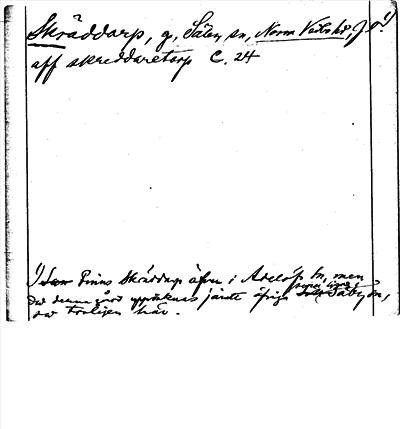 Skräddarp, g, Säby sn, Norra Vedbo hd, J ö.
aff skreddaretorp C. 24
finns Skräddarp äfven i Adelöfs sn, men
då denna gård upptecknas jämte öfriga Säby sn,
so troligen här.